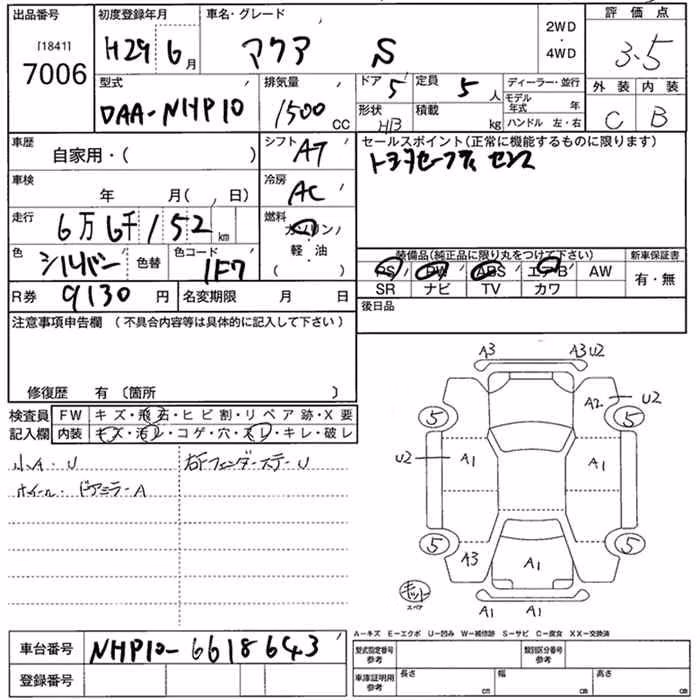 出品番号 初度登録年月 車名・グレード 2WD・4WD 評価点
[1841] 7006 H29 6月 アクア S 3.5
型式 排気量 ドア 5 定員 5人 ディーラー・並行 外装 内装
DAA-NHP10 1500CC 形状 HB 積載 kg モデル年式 年 C B
ハンドル 左・右
車歴 自家用・( ) シフト AT セールスポイント(正常に機能するものに限ります)
トヨタセーフティセンス
車検 年 月( , 日) 冷房 AC
走行 6万6千152km 燃料 ガソリン・軽・油 ( )
色 シルバー 色替 色コード 1F7 装備品(純正品に限り丸をつけて下さい) 新車保証書
PS PW ABS エアB AW 有・無
R券 9130円 名変期限 月 日 SR ナビ TV カワ
後日品
注意事項申告欄 (不具合内容等は具体的に記入して下さい)
修復歴 有〔箇所 〕
検査員 FW キズ・飛石・ヒビ割・リペア跡・X要
記入欄 内装 キズ・汚レ・コゲ・穴・スレ・キレ・破レ
小A・U 右FフェンダーステーU
ホイール・ドアミラーA
A3 A3U2
A2 U2
5 5
U2 A1 A1
5 5
A3 A1
キット
スペア A1 A1
A-キズ E-エクボ U-凹み W-補修跡 S-サビ C-腐食 XX-交換済
車台番号 NHP10-6618643 型式指定番号 参考 類別区分番号 参考
登録番号 車庫証明用 参考 長さ cm 幅 cm 高さ cm